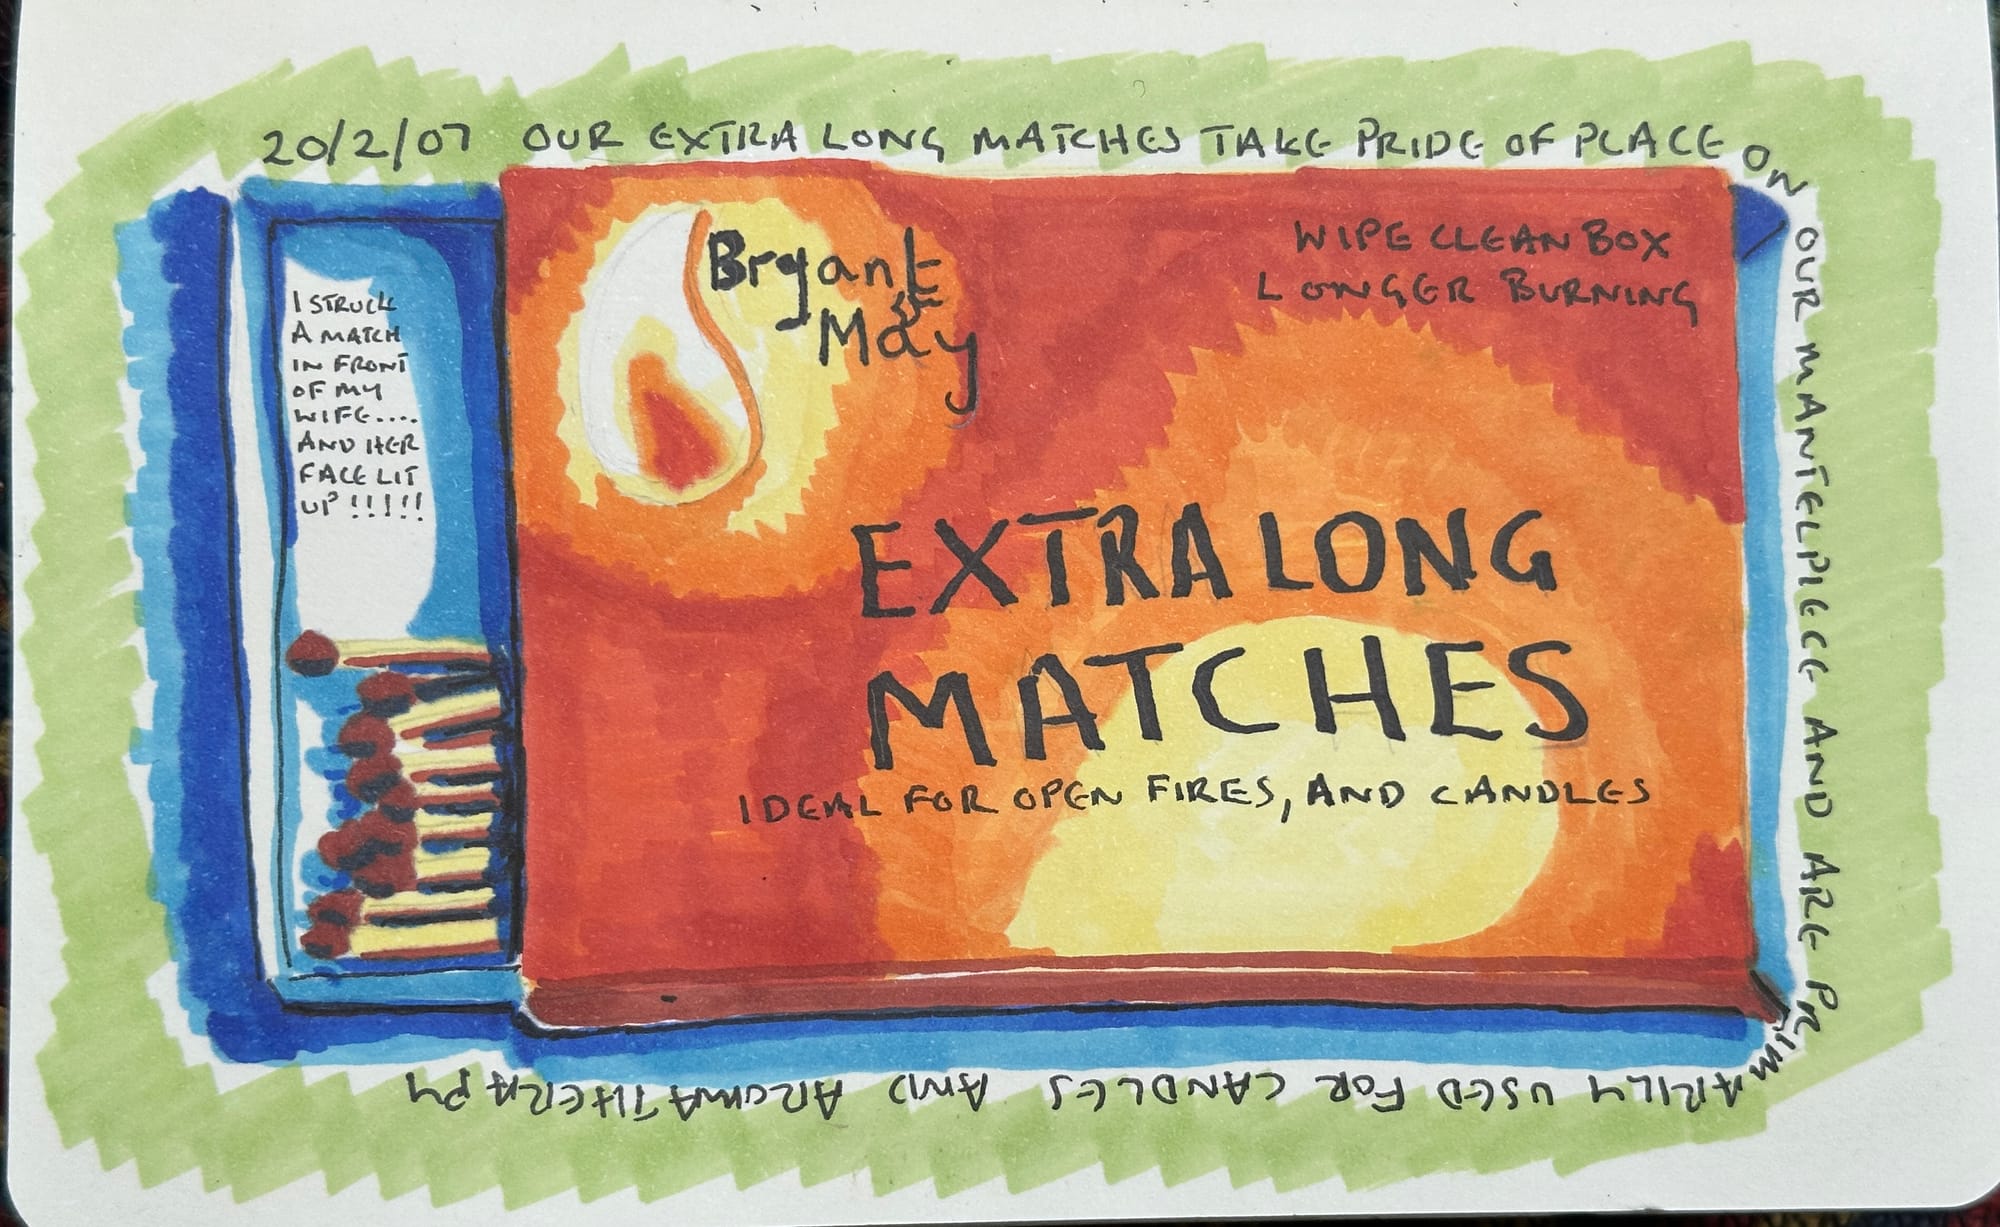 20/2/07 OUR EXTRA LONG MATCHES TAKE PRIDE OF PLACE ON OUR MANTELPIECE AND ARE PRIMARILY USED FOR CANDLES AND AROMATHERAPY
I STRUCK
A MATCH
IN FRONT
OF MY
WIFE....
AND HER
FACE LIT
UP !!!!!
Bryant
&
May
WIPE CLEAN BOX
LONGER BURNING
EXTRA LONG
MATCHES
IDEAL FOR OPEN FIRES, AND CANDLES